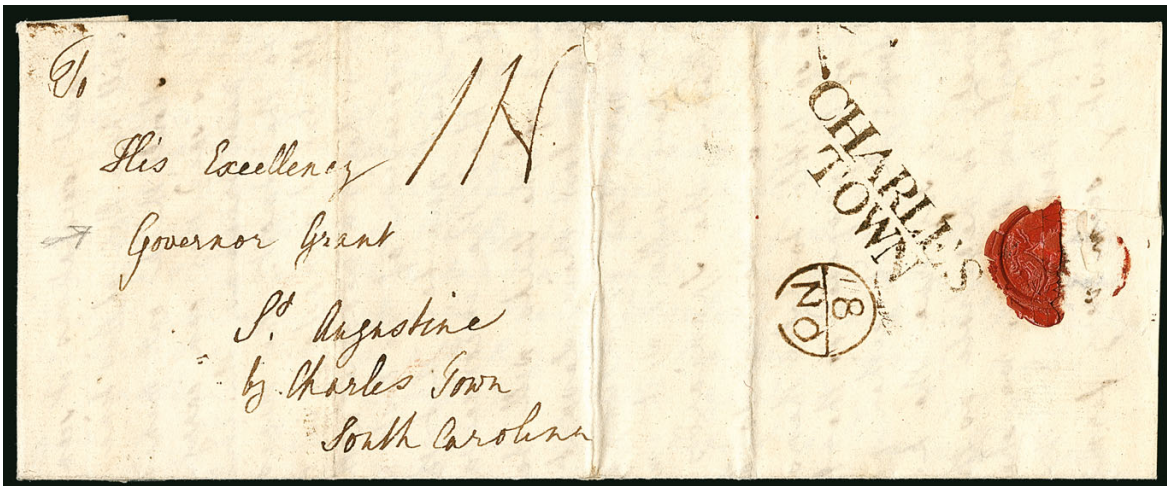 To
His Excellency
Governor Grant
St. Augustine
by Charles Town
South Carolina
1N
CHARLES
TOWN
8
NO